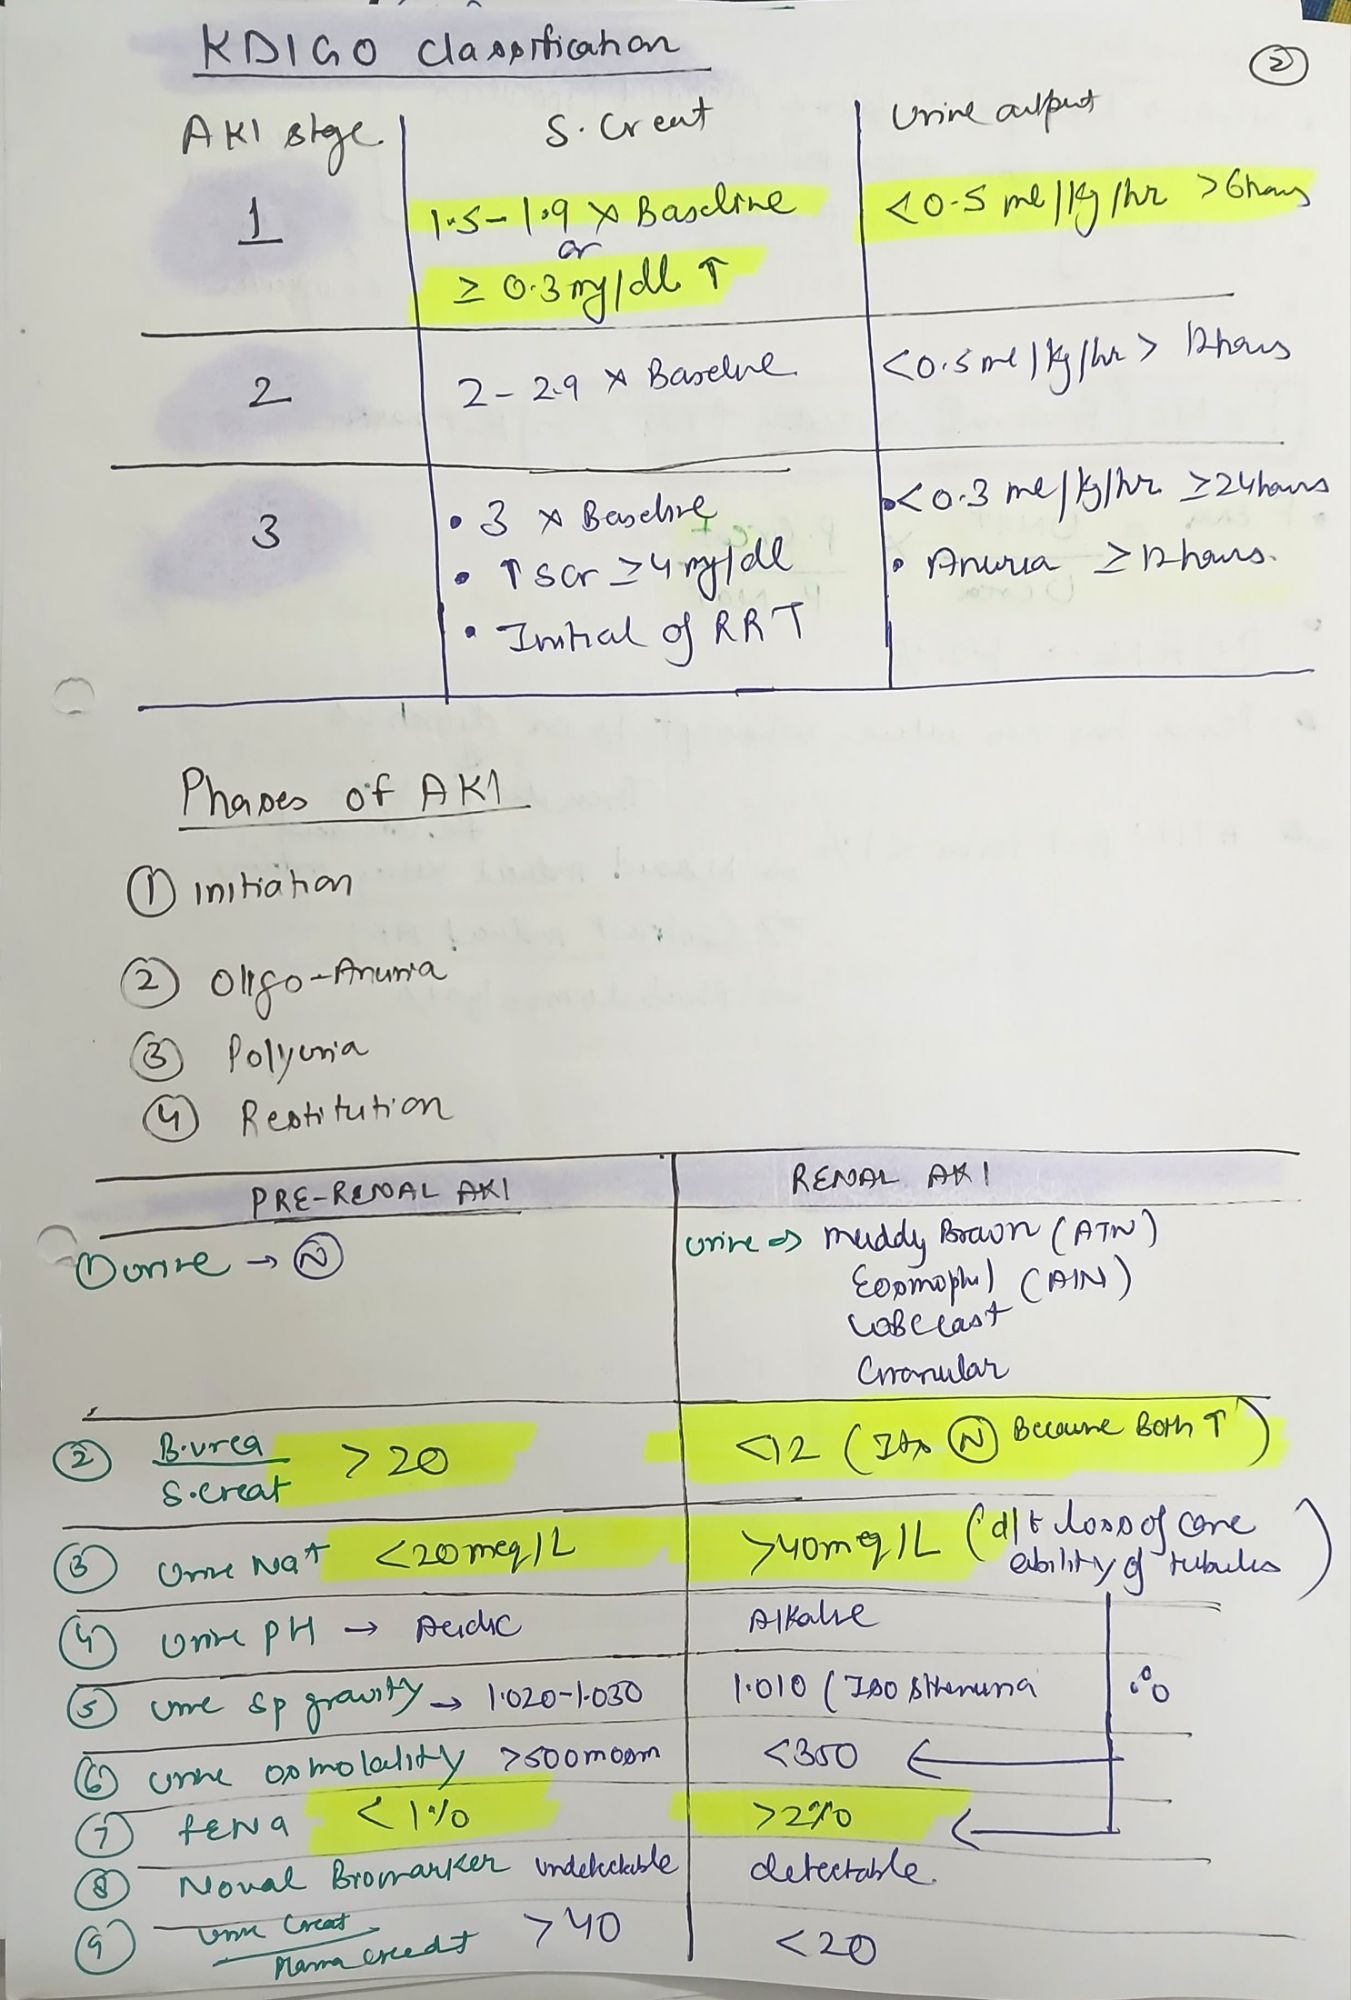 KDIGO classification
2
AKI stage
S. Creat
Urine output
1
1.5-1.9 x Baseline
or
≥ 0.3 mg/dl ↑
<0.5 ml/kg/hr >6hours
2
2-2.9 x Baseline
<0.5 ml/kg/hr > 12hours
3
• 3 x Baseline
• ↑ SCr ≥4 mg/dl
• Initial of RRT
• <0.3 ml/kg/hr ≥24hours
• Anuria ≥12hours.
Phases of AKI
① initiation
② Oligo-Anuria
③ Polyuria
④ Restitution
PRE-RENAL AKI
RENAL AKI
① urine → Ⓝ
urine ⇒ muddy Brown (ATN)
Eosinophil (AIN)
WBC cast
Granular
② B.urea / S.creat >20
<12 (It's Ⓝ Because Both ↑)
③ Urine Na+ <20meq/L
>40meq/L (d/t loss of conc
ability of tubules)
④ urine pH → Acidic
Alkaline
⑤ urine sp gravity → 1.020-1.030
1.010 (Isosthenuria
⑥ urine osmolality >500mosm
<350
⑦ feNa <1%
>2%
⑧ Noval Biomarker undetectable
detectable.
⑨ Urine Creat / Plasma creat >40
<20